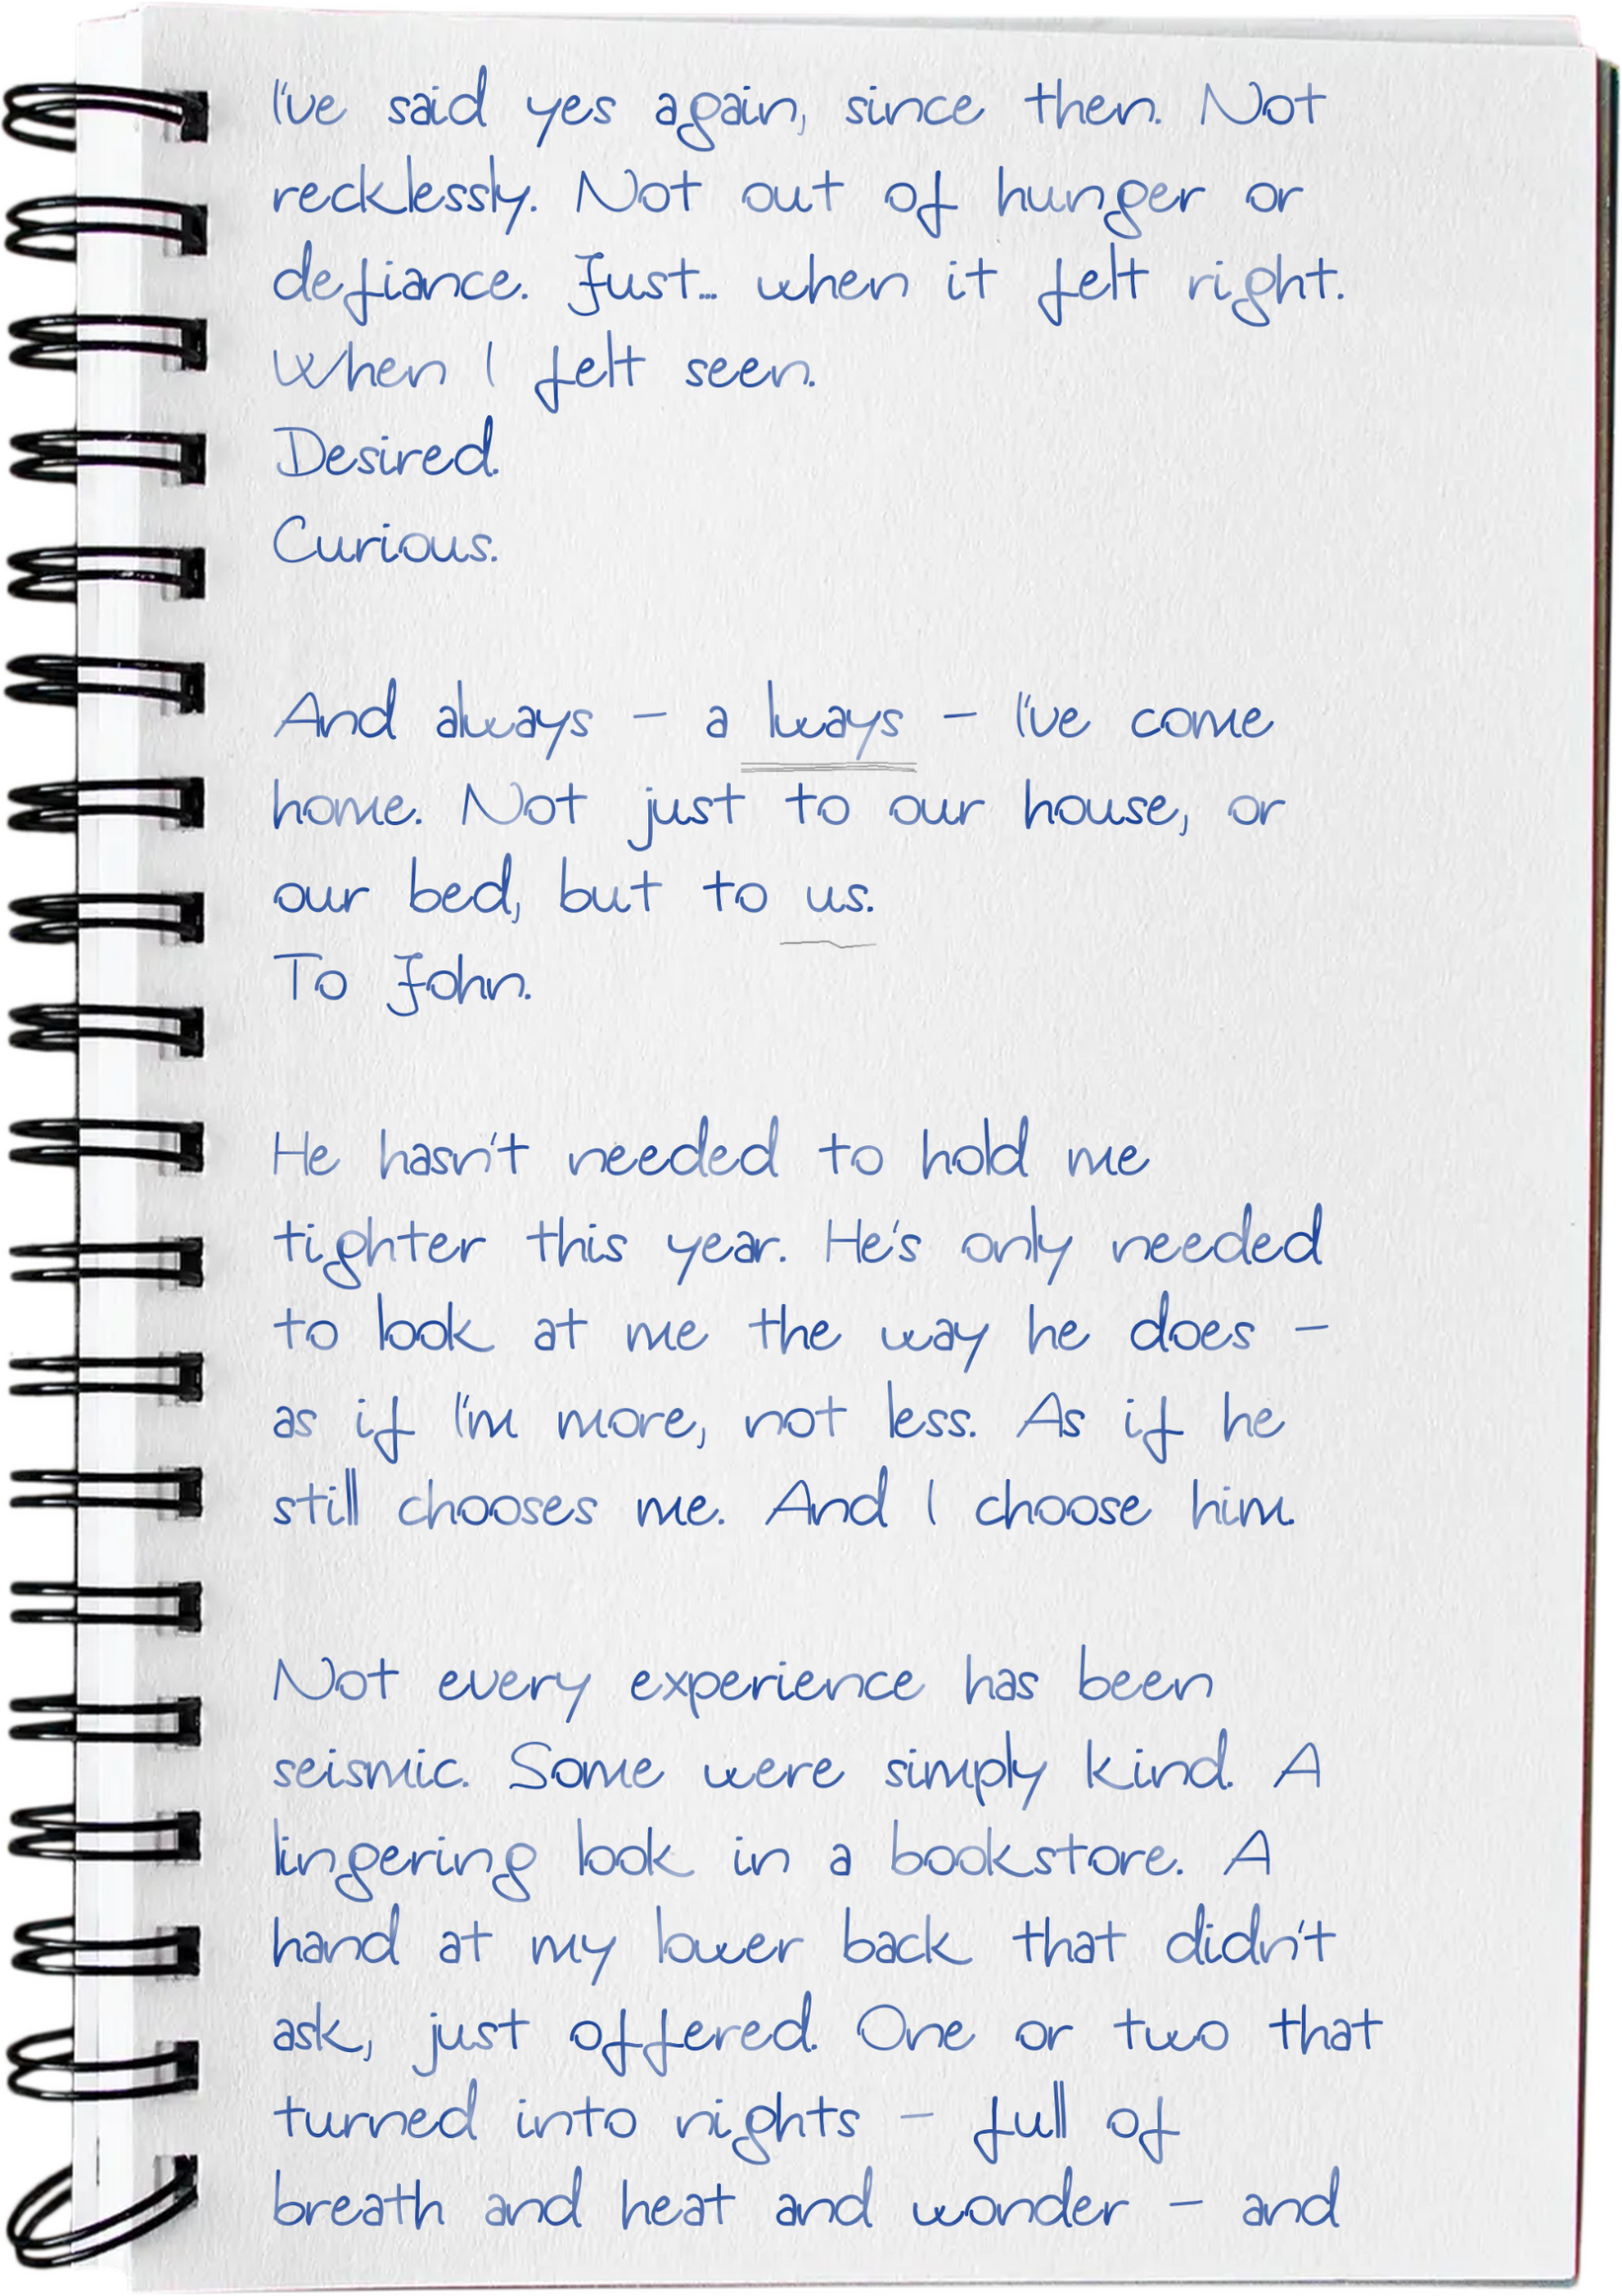 I've said yes again, since then. Not
recklessly. Not out of hunger or
defiance. Just... when it felt right.
When I felt seen.
Desired.
Curious.
And always – a lways – I've come
home. Not just to our house, or
our bed, but to us.
To John.
He hasn't needed to hold me
tighter this year. He's only needed
to look at me the way he does –
as if I'm more, not less. As if he
still chooses me. And I choose him.
Not every experience has been
seismic. Some were simply kind. A
lingering look in a bookstore. A
hand at my lower back that didn't
ask, just offered. One or two that
turned into nights – full of
breath and heat and wonder – and